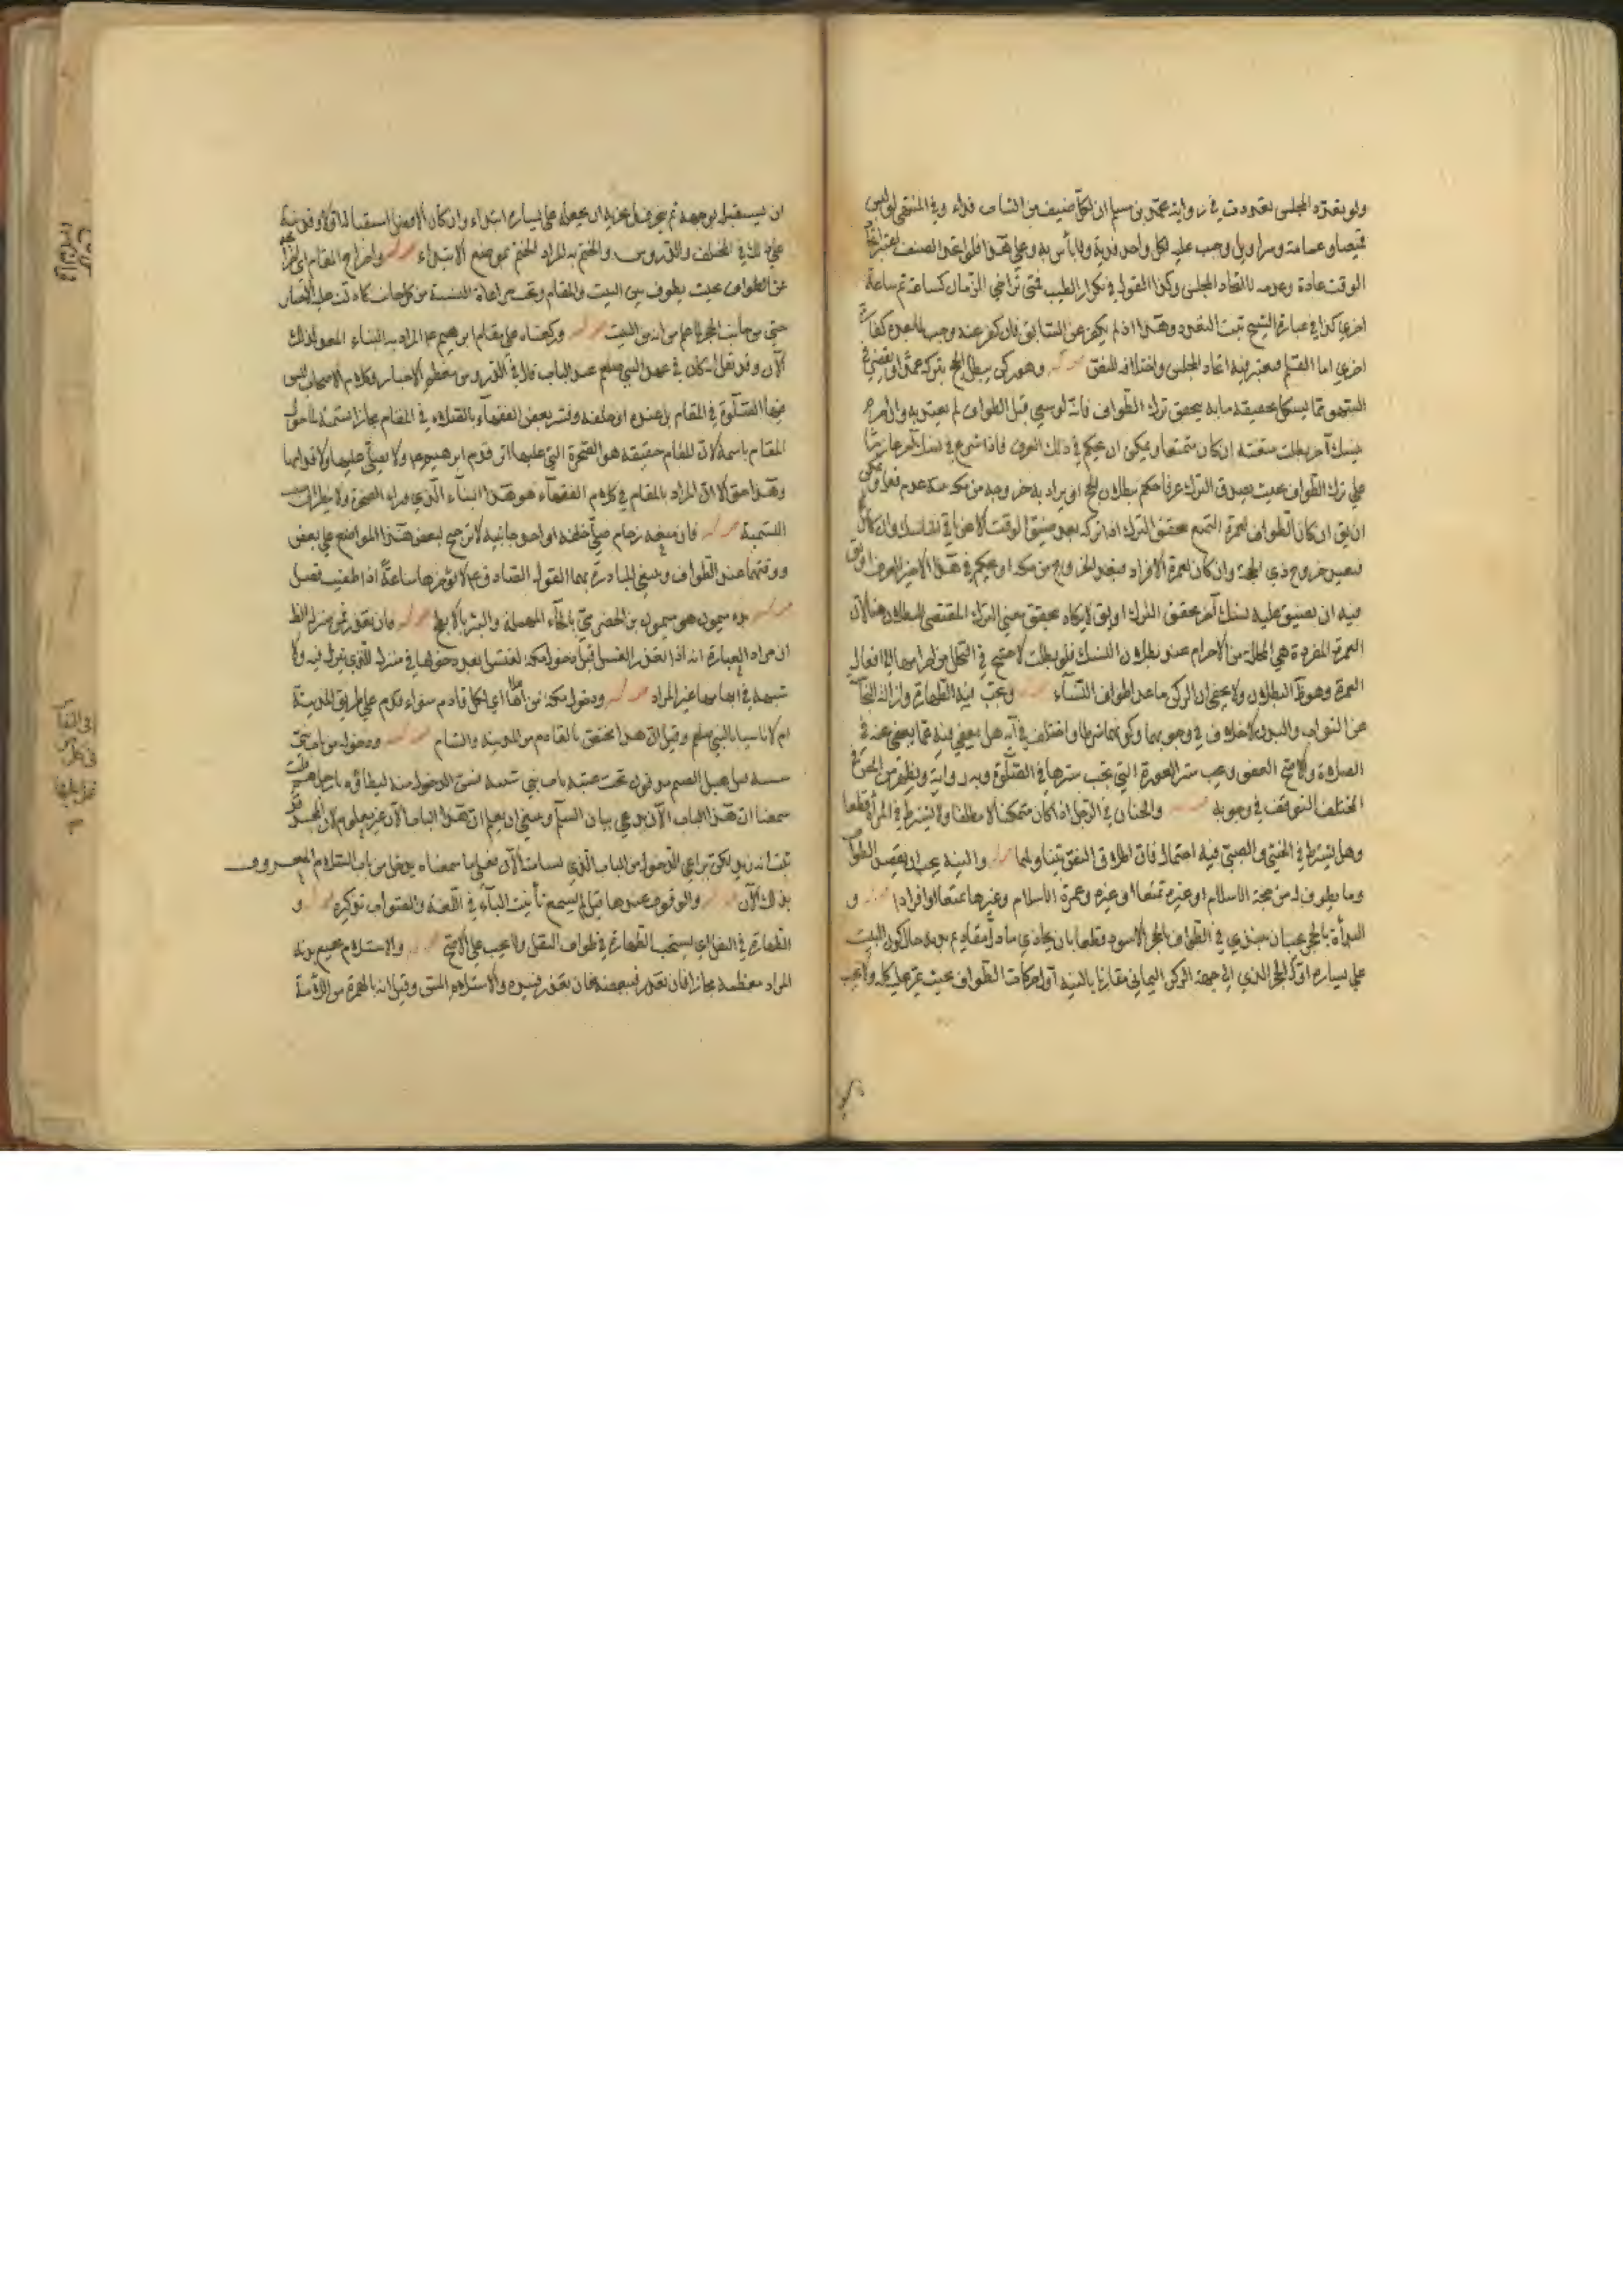 ولو تعدد المجلس تعددت في رواية محمد بن مسلم ان لكل صنف من الثياب فداء وفي المنتهى لو لبس
قميصا وعمامة وسراويل وجب عليه لكل واحد فدية ولا بأس به وعلى هذا فلو اتحد الصنف اعتبر اتحاد
الوقت عادة وعدمه لا اتحاد المجلس وكذا القول في تكرار الطيب فمتى تراخى الزمان كساعة ثم ساعة
اخرى كذا في عبارة الشيخ ثبت التعدد وهذا اذا لم يكفر عن السابق فان كفر عنه وجب لما بعده كفارة
اخرى اما القلم فيعتبر فيه اتحاد المجلس واختلافه للنص وهو ركن يبطل الحج بتركه عمدا ويقضي في
السهو مما يشكل تحقيقه ما به يتحقق ترك الطواف فانه لو سعى قبل الطواف لم يعتد به وان احرم
بنسك آخر بطلت متعته ان كان متمتعا ويمكن ان يحكم في ذلك العرف فاذا شرع في نسك آخر عازما
على ترك الطواف بحيث يصدق الترك عرفا حكم ببطلان الحج او يراد به خروجه من مكة بنية عدم فعله ويمكن
ان يق ان كان الطواف لعمرة التمتع تحقق الترك اذا تركه بعد ضيق الوقت الا عن باقي نفاسك وان كان
فبعد خروج ذي الحجة وان كان لعمرة الافراد فبعد الخروج من مكة او يحكم في هذا الاخير العرف او يق
فيه ان يضيق عليه نسك آخر يحقق الترك او يق لا يكاد يتحقق معنى الترك المقتضي للبطلان هنا لان
العمرة المفردة هي المحللة من الاحرام عند بطلان النسك فلو بطلت لاحتيج في التحلل من احرامها الى افعال
العمرة وهو ظ البطلان ولا يخفى ان الركن ما عدا طواف النساء وتجب فيه الطهارة وازالة النجاسة
عن الثوب والبدن لا خلاف في وجوبهما وكونهما شرطا واختلف في انه هل يعفى فيه عما يعفى عنه في
الصلاة والاصح العفو ويجب ستر العورة التي يجب سترها في الصلوة وبه رواية ويظهر من
المختلف التوقف في وجوبه والختان في الرجل اذا كان متمكنا لا مطلقا ولا يشترط في المرأة قطعا
وهل يشترط في الخنثى والصبي فيه احتمال فان اطلاق النص يتناولهما والنية يجب ان يقصد الطواف
وما يطوف له من حجة الاسلام او غيره تمتعا او غيره وعمرة الاسلام وغيرها تمتعا او افرادا و
البدأة بالحجر يجب ان يبتدي في الطواف بالحجر الاسود قطعا بان يحاذي ما دل مقاديم بدنه حال كون البيت
على يساره اول الحجر الذي الى جهة الركن اليماني مقارنا بالنية اول حركات الطواف بحيث يمر عليه كله ولا يجب
ان يستقبل بوجهه ثم ينحرف بل يجزيه ان يجعله على يساره ابتداء وان كان الافضل استقباله اولا وقد نبه
على ذلك في المختلف والدروس والختم به المراد الختم بموضع الابتداء واخراج المقام اي اخراجه
عن الطواف بحيث يطوف بين البيت والمقام ويجب مراعاة النسبة من كل جانب كما دلت عليه الاخبار
حتى من جانب الحجر لانه من البيت وركعتاه على مقام ابرهيم ع المراد به البناء المعد لذلك
الآن وقد نقل انه كان في عهد النبي صلعم عند الباب قال في الدروس معظم الاخبار وكلام الاصحاب ليس
فيها الصلوة في المقام بل عنده او خلفه وفسر بعض الفقهاء بالصلاة في المقام مجازا تسمية لما حول
المقام باسمه لان المقام حقيقة هو الصخرة التي عليها اثر قدم ابرهيم ع ولا يصلى عليها ولا قدامها
وهذا حق الا ان المراد بالمقام في كلام الفقهاء هو هذا البناء الذي وراء الصخرة ولا يطرأ لتلك
التسمية فان منعه زحام صلى خلفه او احد جانبيه لا ترجيح لبعض هذا المواضع على بعض
ووقتهما عند الطواف وينبغي المبادرة بهما لقول الصادق ع لا تؤخرها ساعة اذا طفت فصل
بئر ميمون هو ميمون بن الحضرمي بالحاء المهملة والبئر بالابطح وان تعذر فمن منزله الظ
ان مراد العبارة انه اذا تعذر الغسل قبل دخول مكة اغتسل بعد دخولها في منزله الذي ينزل فيه ولا
شبهة في ايهامها غير المراد ودخول مكة من اعلاها اي لكل قادم سواء قدم على طريق المدينة
ام لا تاسيا بالنبي صلعم وقيل ان هذا يختص بالقادم من المدينة والشام ودخوله من باب بني
شيبة قيل هبل الصنم مدفون تحت عتبة باب بني شيبة فسن الدخول منه ليطأوه بارجلهم قلت
سمعنا ان هذا الباب الآن يدعى باب السلام وينبغي ان يعلم ان هذا الباب الآن غير معلوم لان المسجد قد
ثبت انه زيد لكن يراعى الدخول من الباب الذي يسامت الآن فعلى ما سمعناه يدخل من باب السلام المعروف
بذلك الآن والوقوف عندها قيل لم يسمع تأنيث الباب في اللغة والصواب تذكيره و
الطهارة في النفل اي يستحب الطهارة في طواف النفل ولا يجب على الاصح والاستلام جميع بدنه
المراد معظمه مجازا فان تعذر فببعضه فان تعذر فبيده والاستلام المس وقيل انه بالهمزة من اللأمة